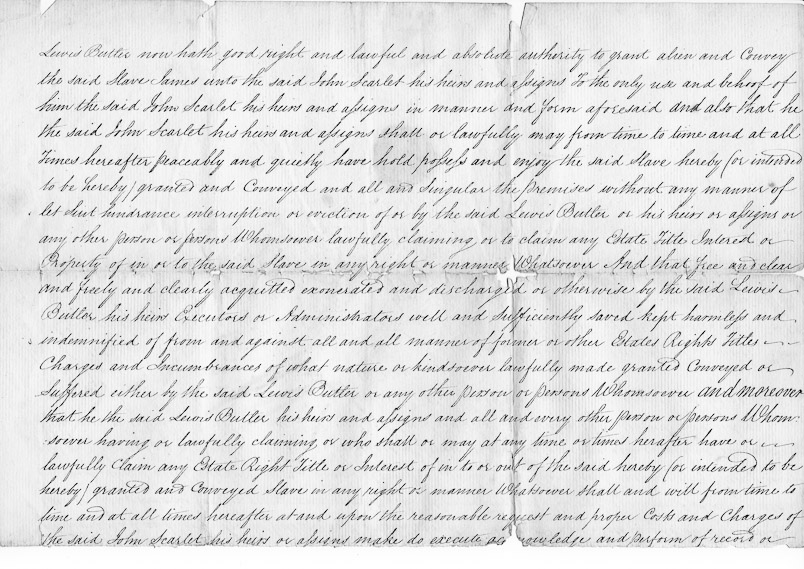 Lewis Butler now hath good right and lawful and absolute authority to grant alien and Convey
the said Slave James unto the said John Scarlet his heirs and assigns To the only use and behoof of
him the said John Scarlet his heirs and assigns in manner and form aforesaid and also that he
the said John Scarlet his heirs and assigns shall or lawfully may from time to time and at all
Times hereafter peaceably and quietly have hold possess and enjoy the said Slave hereby (or intended
to be hereby) granted and Conveyed and all and Singular the Premises without any manner of
let Suit hindrance interruption or eviction of or by the said Lewis Butler or his heirs or assigns or
any other person or persons Whomsoever lawfully claiming, or to claim any Estate Title Interest or
Property of in or to the said Slave in any right or manner Whatsoever And that free and clear
and freely and clearly acquitted exonerated and discharged or otherwise by the said Lewis
Butler his heirs Executors or Administrators well and sufficiently saved kept harmless and
indemnified of from and against all and all manner of former or other Estates Rights Titles
Charges and Incumbrances of what nature or kindsoever lawfully made granted Conveyed or
Suffered either by the said Lewis Butler or any other person or persons Whomsoever and moreover
that he the said Lewis Butler his heirs and assigns and all and every other person or persons Whom
soever having or lawfully claiming, or who shall or may at any time or times herafter have or
lawfully Claim any Estate Right Title or Interest of in to or out of the said hereby (or intended to be
hereby) granted and Conveyed Slave in any right or manner Whatsoever Shall and will from time to
time and at all times hereafter at and upon the reasonable request and proper Costs and Charges of
the said John Scarlet his heirs or assigns make do execute acknowledge and perform of record or